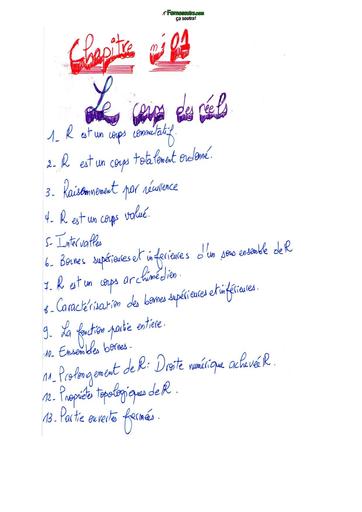 Fomesoutra.com
ça soutra!
Chapitre n°01
Le corps des réels.
1_ R est un corps commutatif
2_ R est un corps totalement ordonné.
3_ Raisonnement par récurrence
4_ R est un corps valué.
5- Intervalles
6_ Bornes supérieures et inférieures d'un sous ensemble de R
7_ R est un corps archimédien.
8_ Caractérisation des bornes supérieures et inférieures.
9_ La fonction partie entière.
10_ Ensembles bornés.
11_ Prolongement de R: Droite numérique achevée R.
12_ Propriétés topologiques de R.
13_ Partie ouvertes fermées.